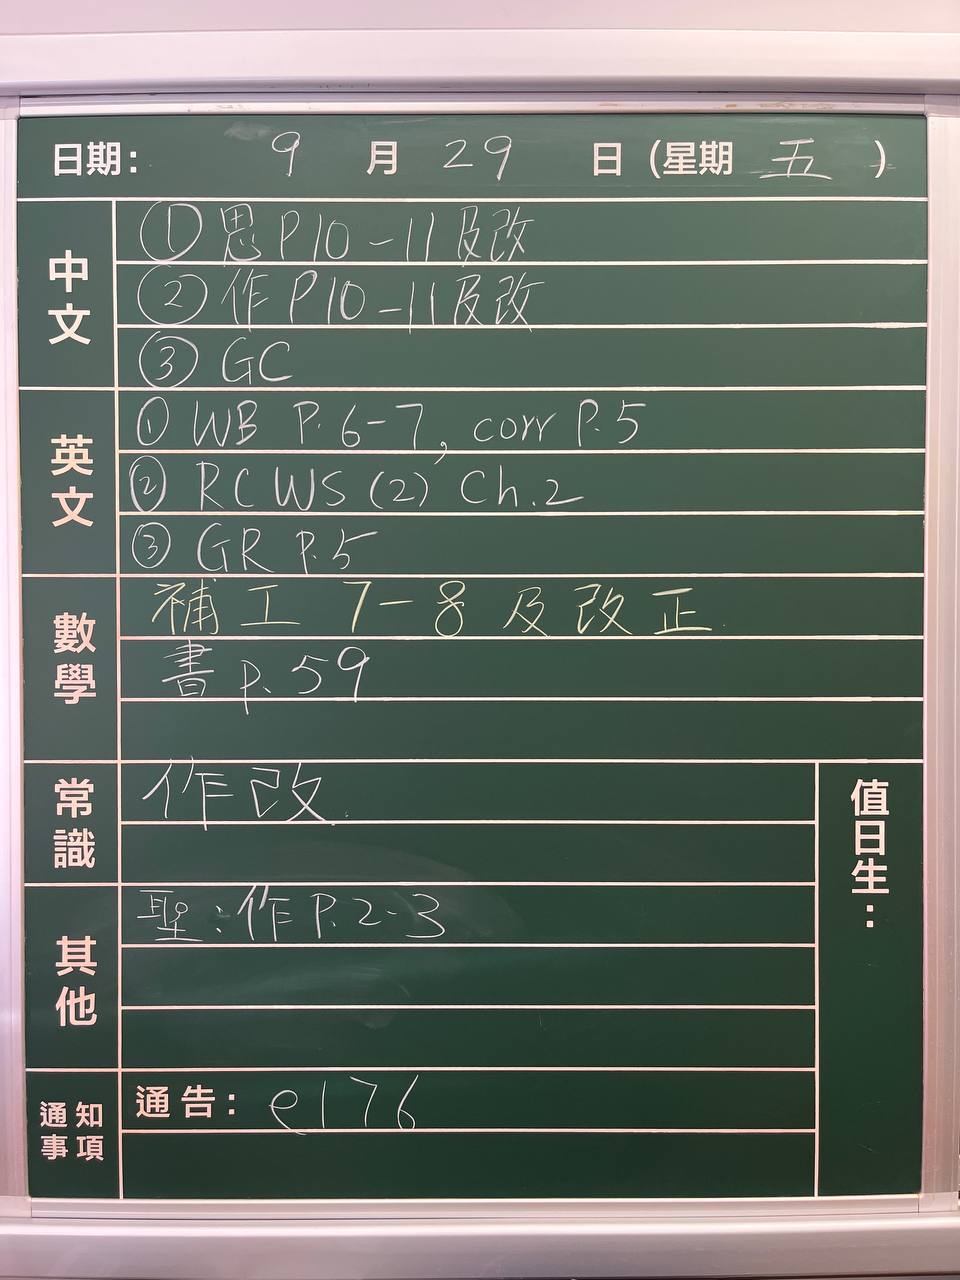 日期： 9 月 29 日 (星期 五 )
中文
① 思 P10-11及改
② 作 P10-11及改
③ GC
英文
① WB P.6-7, corr P.5
② RC WS (2) Ch.2
③ GR P.5
數學
補工 7-8 及改正
書 p.59
常識
作改.
其他
聖:作P.2-3
通知事項
通告： e176
值日生：